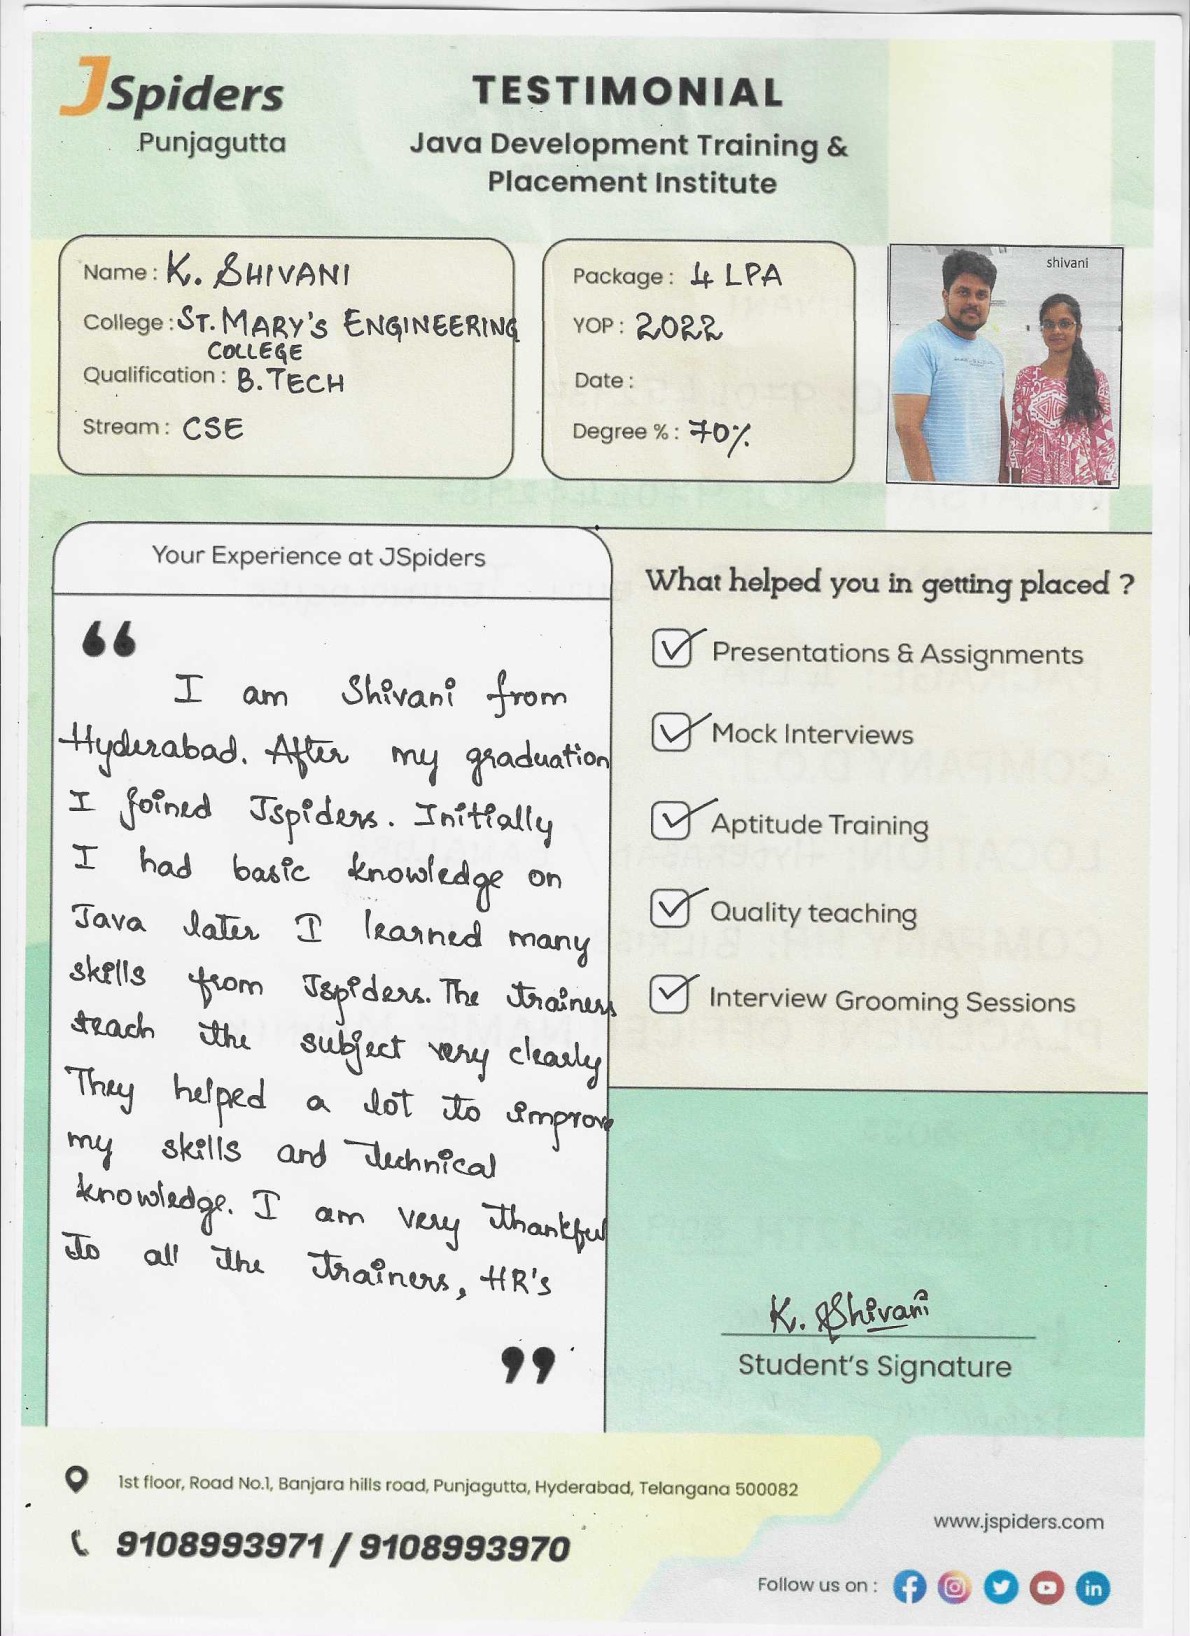 JSpiders
Punjagutta
TESTIMONIAL
Java Development Training &
Placement Institute
Name : K. SHIVANI
College : ST. MARY'S ENGINEERING
COLLEGE
Qualification : B.TECH
Stream : CSE
Package : 4 LPA
YOP : 2022
Date :
Degree % : 70%
shivani
Your Experience at JSpiders
“
I am Shivani from
Hyderabad. After my graduation
I joined Jspiders. Initially
I had basic knowledge on
Java later I learned many
skills from Jspiders. The trainers
teach the subject very clearly
They helped a lot to improve
my skills and technical
knowledge. I am very thankful
to all the trainers, HR's
”
What helped you in getting placed ?
Presentations & Assignments
Mock Interviews
Aptitude Training
Quality teaching
Interview Grooming Sessions
K. Shivani
Student's Signature
1st floor, Road No.1, Banjara hills road, Punjagutta, Hyderabad, Telangana 500082
9108993971 / 9108993970
www.jspiders.com
Follow us on :